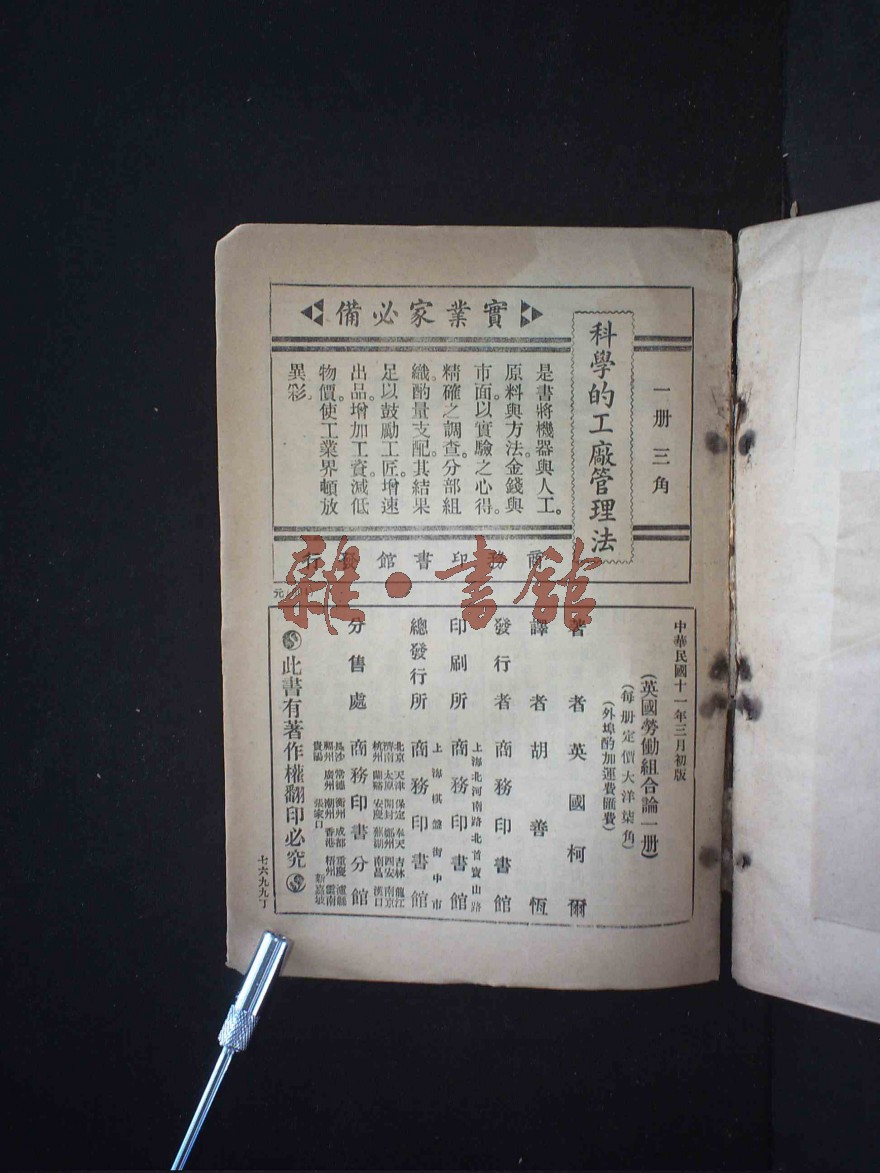 實業家必備
一册三角
科學的工廠管理法
是書將機器與人工。
原料與方法。金錢與
市面。以實驗之心得。
精確之調查。分部組
織。酌量支配。其結果
足以鼓勵工匠。增速
出品。增加工資。減低
物價。使工業界頓放
異彩。
商務印書館發行
元
中華民國十一年三月初版
(英國勞働組合論一册)
(每册定價大洋柒角)
(外埠酌加運費匯費)
著者英國柯爾
譯者胡善恆
發行者商務印書館
上海北河南路北首寶山路
印刷所商務印書館
上海棋盤街中市
總發行所商務印書館
北京 天津 保定 奉天 吉林 龍江
濟南 太原 開封 鄭州 西安 南京
杭州 蘭谿 安慶 蕪湖 南昌 漢口
分售處商務印書分館
長沙 常德 衡州 成都 重慶 瀘縣
福州 廣州 潮州 香港 梧州 雲南
貴陽 張家口 新嘉坡
此書有著作權翻印必究
七六九九丁
雜·書館